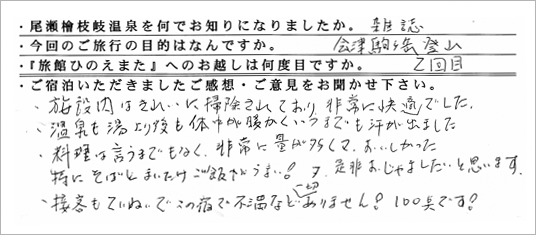 ・尾瀬檜枝岐温泉を何でお知りになりましたか。 雑誌
・今回のご旅行の目的はなんですか。 会津駒ヶ岳登山
・『旅館ひのえまた』へのお越しは何度目ですか。 2回目
・ご宿泊いただきましたご感想・ご意見をお聞かせ下さい。
・施設内はきれいに掃除されており、非常に快適でした。
・温泉も湯上り後も体中が暖かくいつまでも汗が出ました
・料理は言うまでもなく、非常に量が多くて、おいしかった
特にそばとまいたけご飯がうまい! 又、是非おじゃましたいと思います。
・接客もていねいでこの宿で不満など一切ありません! 100点です!